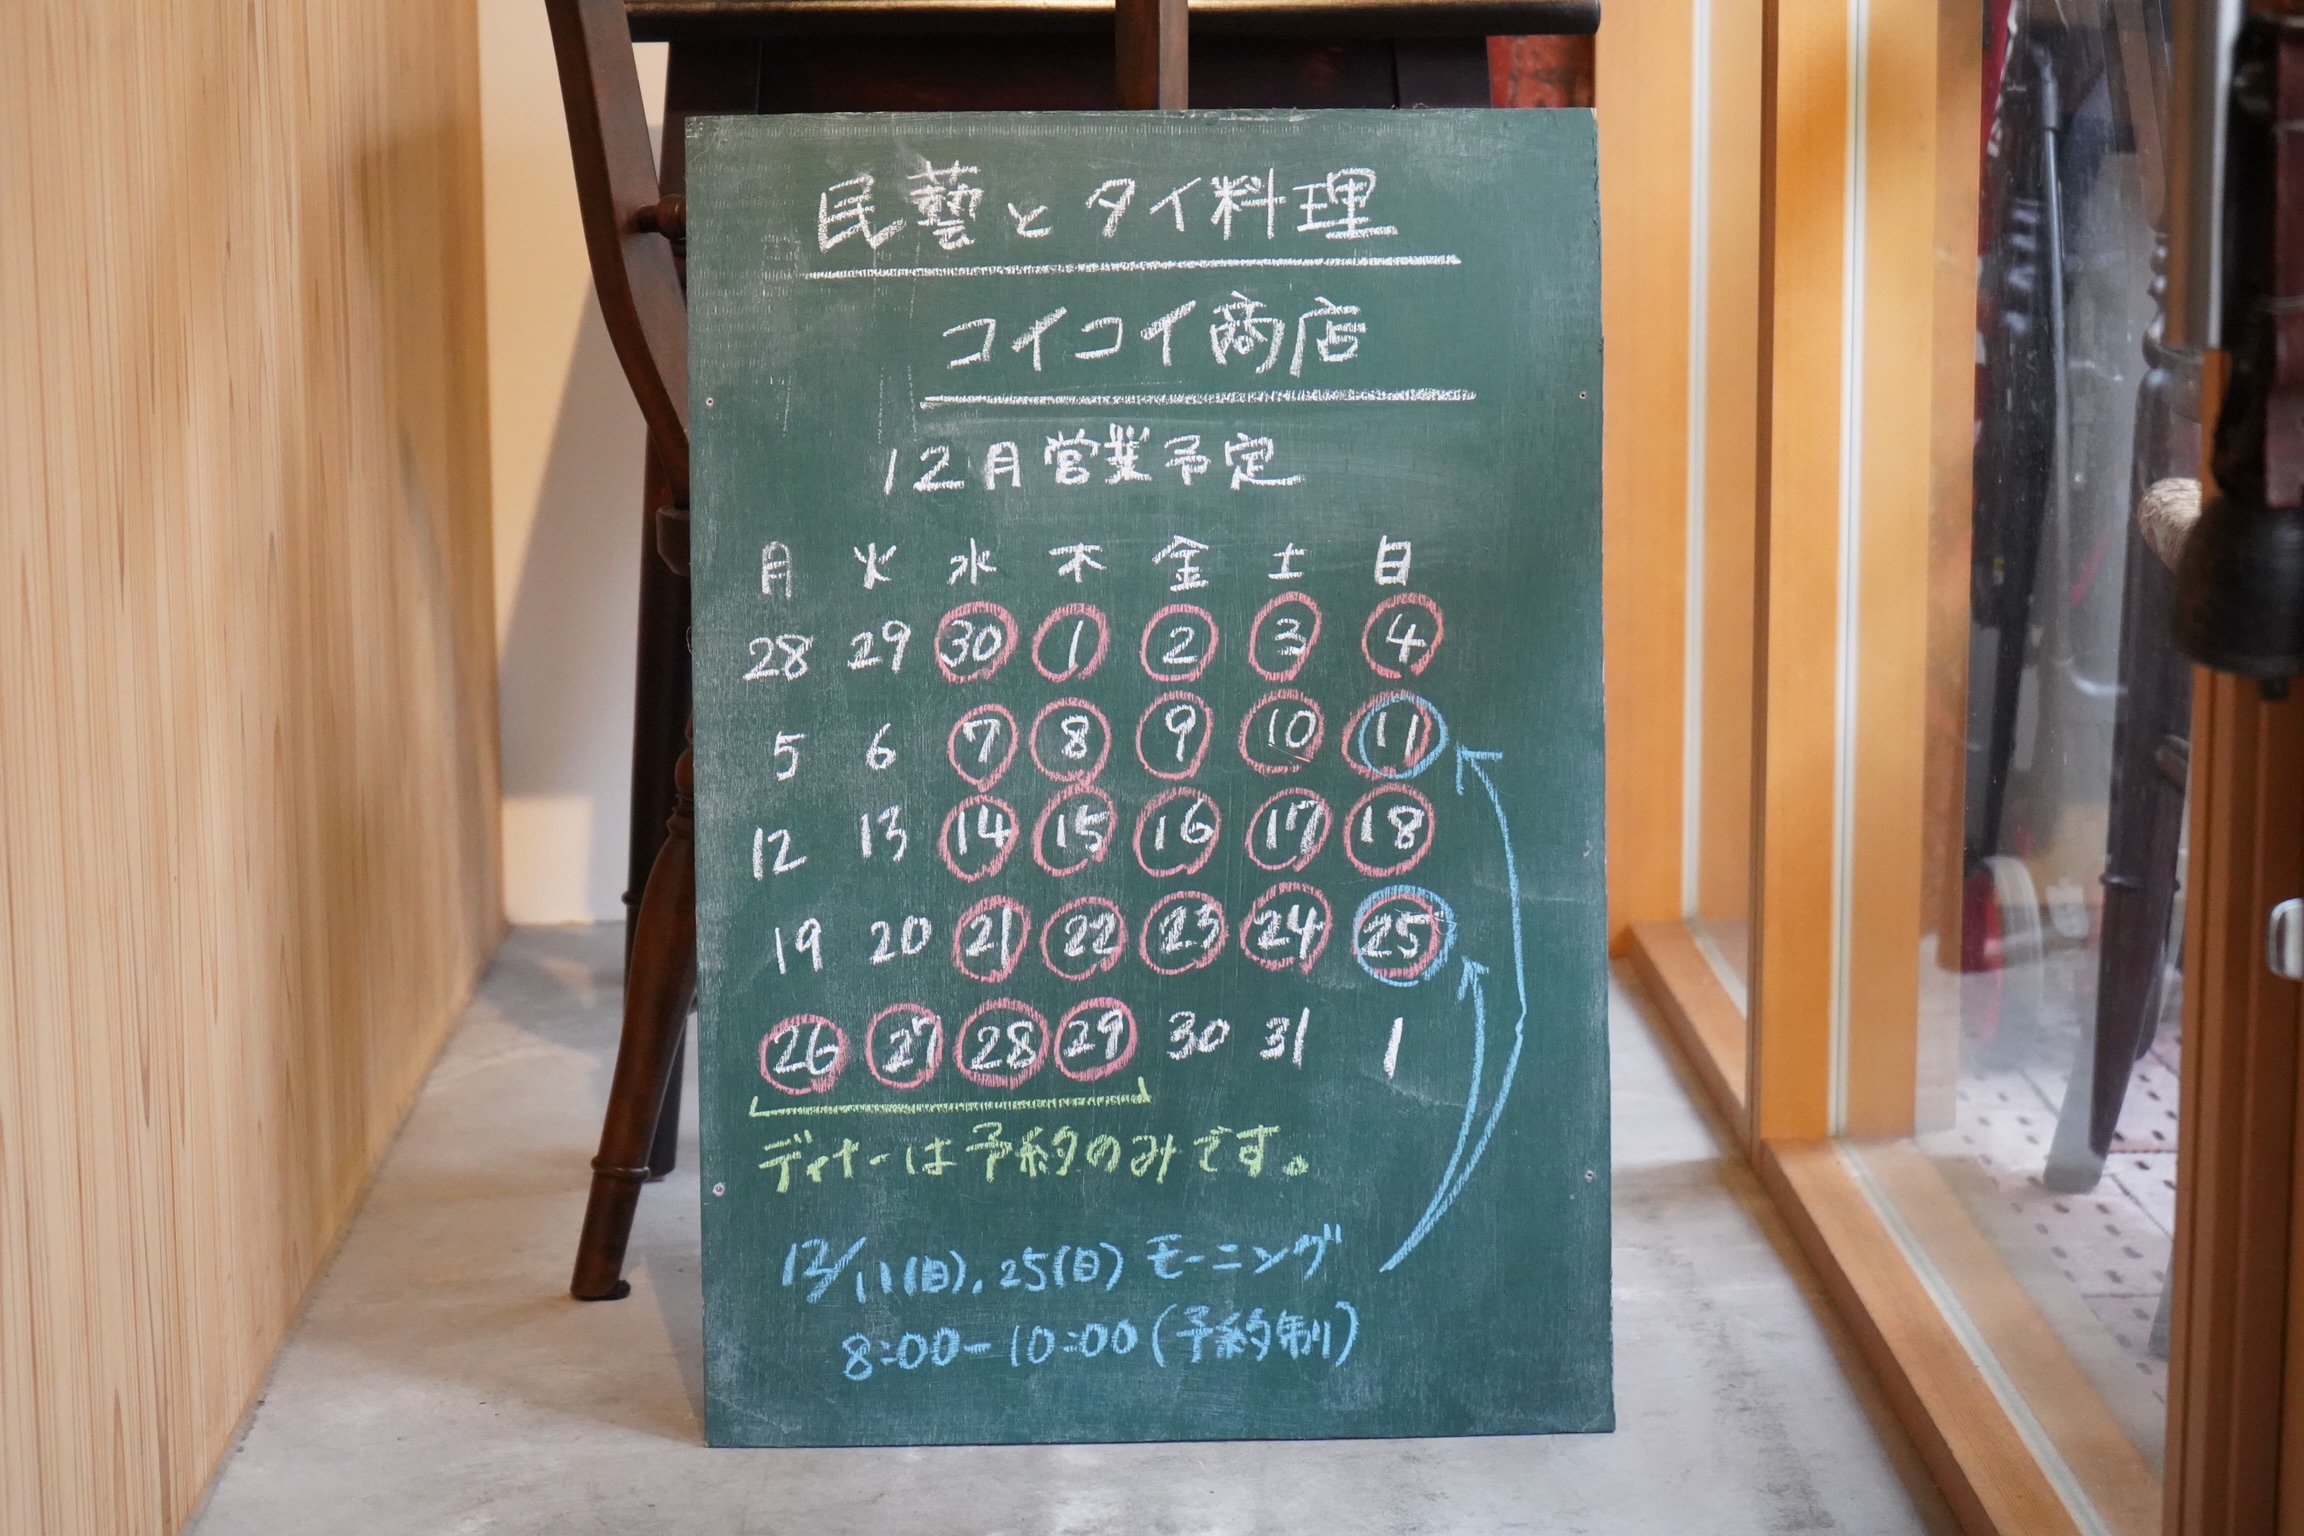 民藝とタイ料理
コイコイ商店
12月営業予定
月 火 水 木 金 土 日
28 29 30 1 2 3 4
5 6 7 8 9 10 11
12 13 14 15 16 17 18
19 20 21 22 23 24 25
26 27 28 29 30 31 1
ディナーは予約のみです。
12/11(日), 25(日) モーニング
8:00-10:00(予約制)